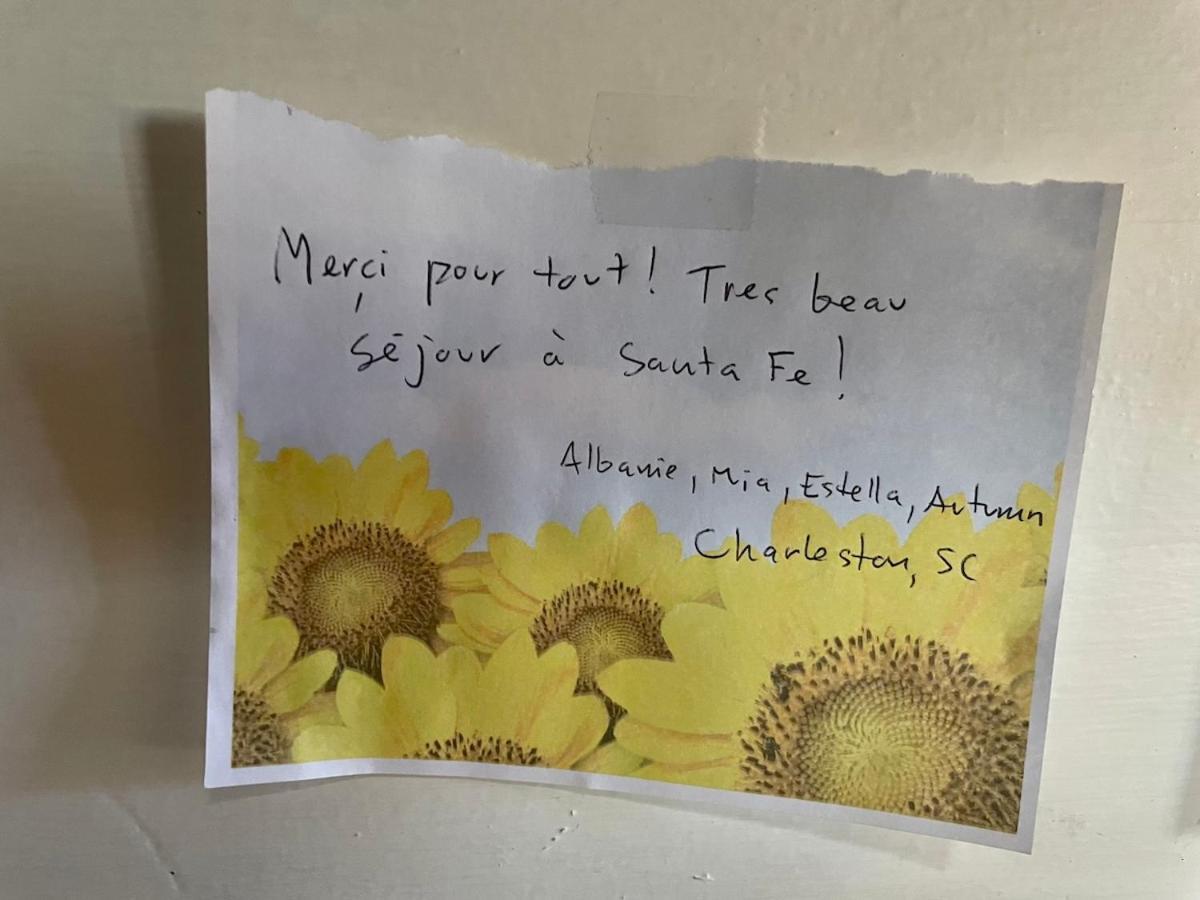 Merçi pour tout! Tres beau
séjour à Santa Fe!
Albanie, Mia, Estella, Autumn
Charleston, SC